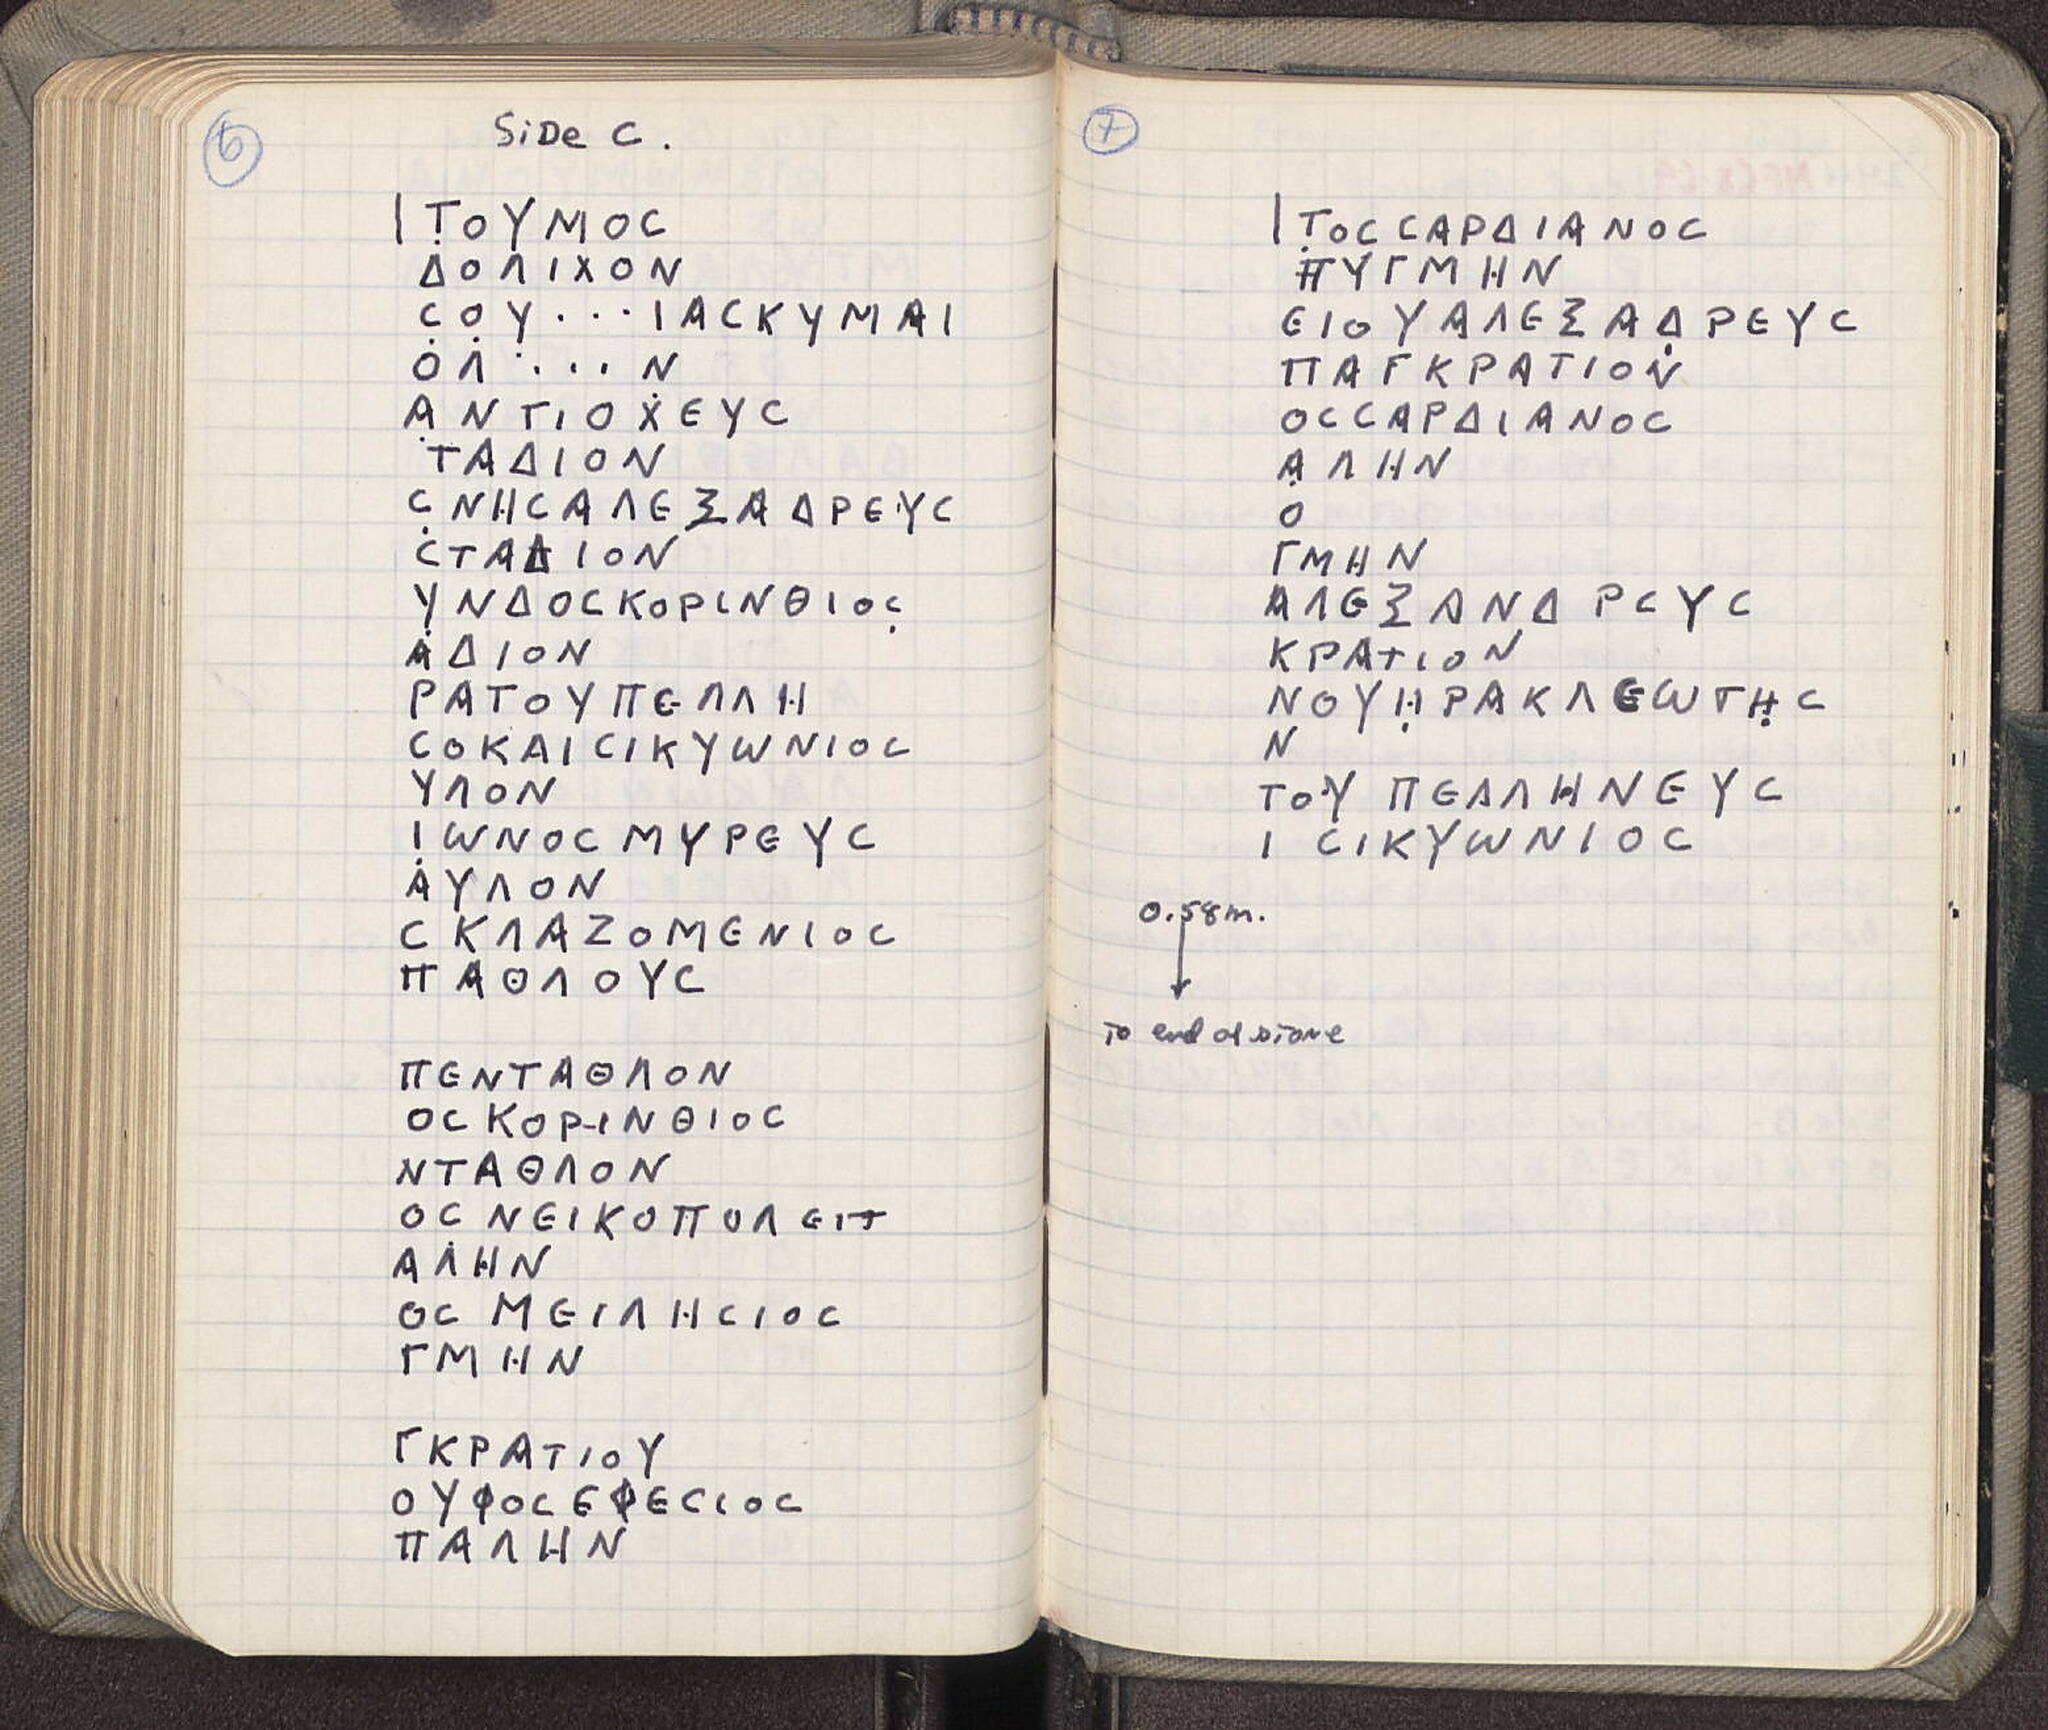 6
Side C.
| ΤΟΥΜΟC
ΔΟΛΙΧΟΝ
COY...ΙΑCΚΥΜΑΙ
ΟΛ....Ν
ΑΝΤΙΟΧΕΥC
ΤΑΔΙΟΝ
CΝΗCΑΛΕΞΑΔΡΕΥC
CΤΑΔΙΟΝ
ΥΝΔΟCΚΟΡΙΝΘΙΟC
ΑΔΙΟΝ
ΡΑΤΟΥΠΕΛΛΗ
CΟΚΑΙCΙΚΥωΝΙΟC
ΥΛΟΝ
ΙωΝΟCΜΥΡΕΥC
ΑΥΛΟΝ
C ΚΛΑΖΟΜΕΝΙΟC
ΠΑΘΛΟΥC
ΠΕΝΤΑΘΛΟΝ
ΟC ΚΟΡΙΝΘΙΟC
ΝΤΑΘΛΟΝ
ΟC ΝΕΙΚΟΠΟΛΕΙΤ
ΑΛΗΝ
ΟC ΜΕΙΛΗCΙΟC
ΓΜΗΝ
ΓΚΡΑΤΙΟΥ
ΟΥΦΟC ΕΦΕCΙΟC
ΠΑΛΗΝ
7
| ΤΟC CΑΡΔΙΑΝΟC
ΠΥΓΜΗΝ
ΕΙΟΥΑΛΕΞΑΔΡΕΥC
ΠΑΓΚΡΑΤΙΟΝ
ΟCCΑΡΔΙΑΝΟC
ΑΛΗΝ
Ο
ΓΜΗΝ
ΑΛΕΞΑΝΔΡCΥC
ΚΡΑΤΙΟΝ
ΝΟΥΗΡΑΚΛΕωΤΗC
Ν
ΤΟΥ ΠΕΛΛΗΝΕΥC
Ι CΙΚΥωΝΙΟC
0.58m.
To end of stone